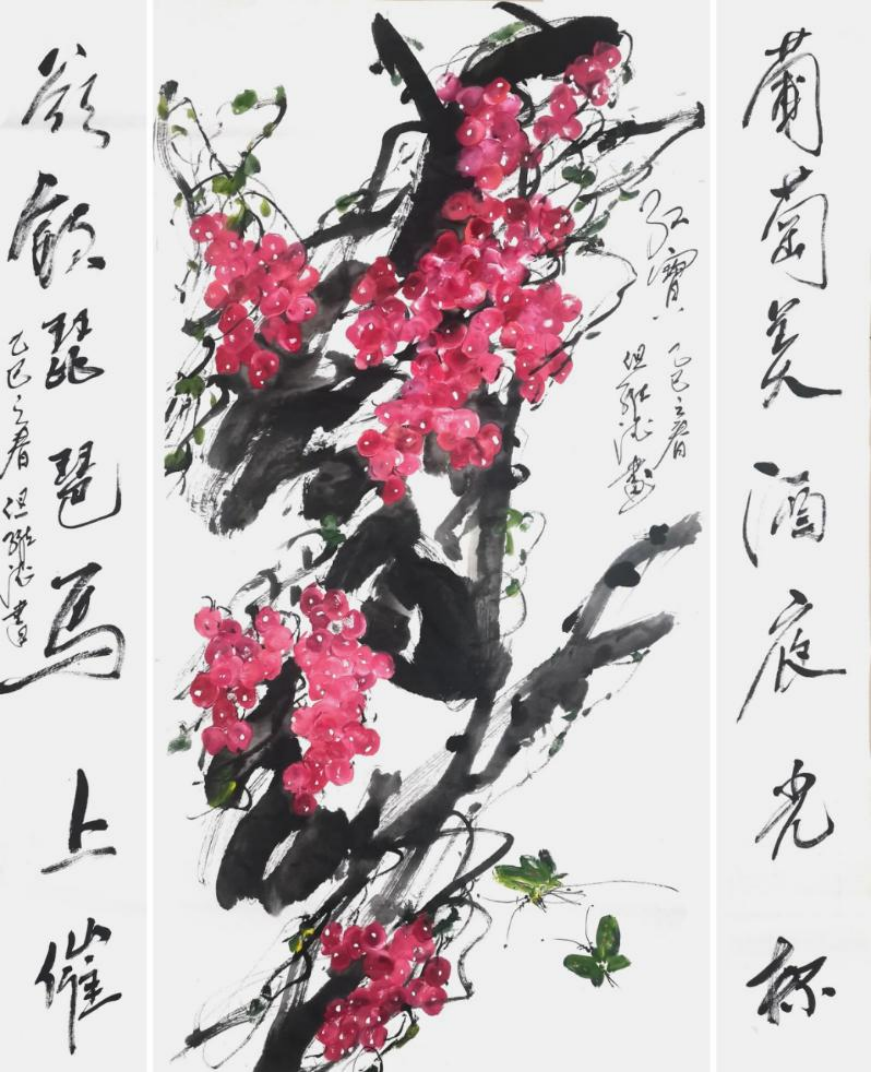 葡萄美酒夜光杯
红寶
乙巳之春
画
欲飲琵琶馬上催
乙巳之春 書